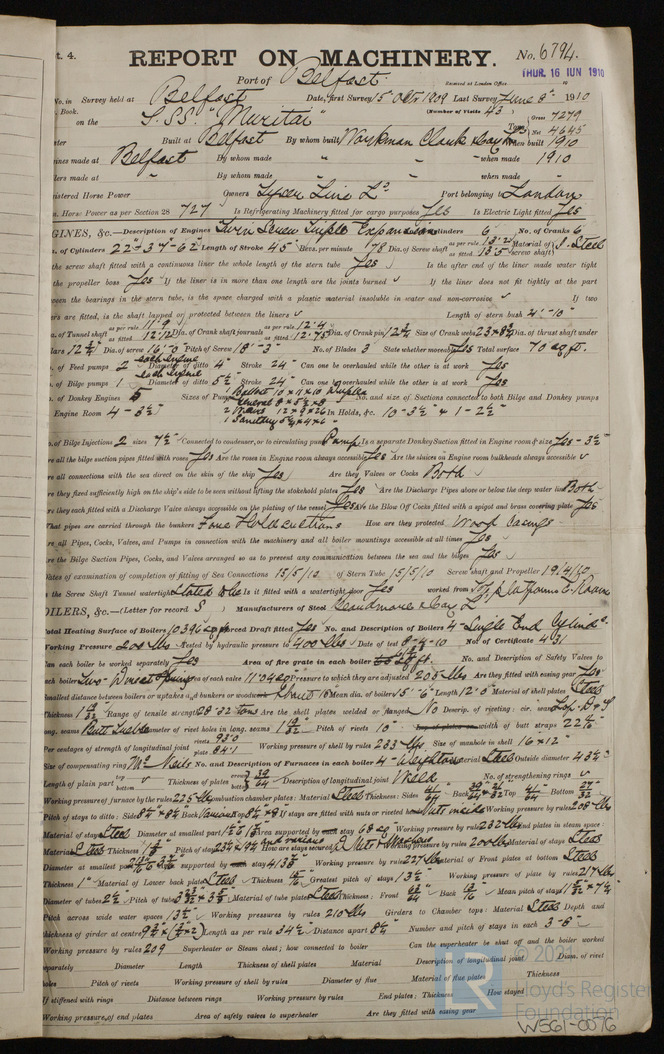 t. 4.
REPORT ON MACHINERY. No. 6794.
Port of Belfast Received at London Office THUR. 16 JUN 1910
No. in Survey held at Belfast Date, first Survey 15 Octr 1909 Last Survey June 8th 1910
Book. (Number of Visits 43)
on the S.S.S. "Muritai" Tons Gross 7279 Net 4645
Built at Belfast By whom built Workman Clark & Coy Ltd When built 1910
ines made at Belfast By whom made " " when made 1910
lers made at " By whom made " " when made "
istered Horse Power Owners Tyser Line Ld Port belonging to London
. Horse Power as per Section 28 727 Is Refrigerating Machinery fitted for cargo purposes Yes Is Electric Light fitted Yes
GINES, &c.—Description of Engines Twin Screw Triple Expansion Cylinders 6 No. of Cranks 6
of Cylinders 22"-37-62 Length of Stroke 45" Revs. per minute 78 Dia. of Screw shaft as per rule 13.2 as fitted 13.5 Material of screw shaft Steel
the screw shaft fitted with a continuous liner the whole length of the stern tube Yes Is the after end of the liner made water tight
the propeller boss Yes If the liner is in more than one length are the joints burned If the liner does not fit tightly at the part
ween the bearings in the stern tube, is the space charged with a plastic material insoluble in water and non-corrosive If two
ers are fitted, is the shaft lapped or protected between the liners Length of stern bush 4'-10"
of Tunnel shaft as per rule 11.9 as fitted Dia. of Crank shaft journals as per rule 12.4 as fitted 12.75 Dia. of Crank pin 12 3/4 Size of Crank webs Dia. of thrust shaft under
lars 12 3/4 Dia. of screw 16'-0 Pitch of Screw 18'-3" No. of Blades 3 State whether moveable Yes Total surface 70 sq ft.
of Feed pumps 2 each engine Diameter of ditto 4" Stroke 24" Can one be overhauled while the other is at work Yes
of Bilge pumps 1 each engine Diameter of ditto 5 1/2 Stroke 24" Can one be overhauled while the other is at work Yes
of Donkey Engines 5 Sizes of Pumps Ballast 10 x 11 x 10 Duplex No. and size of Suctions connected to both Bilge and Donkey pumps
Engine Room 4 - 3 1/2" In Holds, &c. 10 - 3 1/2" & 1 - 2 1/2"
of Bilge Injections 2 sizes 7 1/2" Connected to condenser, or to circulating pump Pump Is a separate Donkey Suction fitted in Engine room & size Yes - 3 1/2
re all the bilge suction pipes fitted with roses Yes Are the roses in Engine room always accessible Yes Are the sluices on Engine room bulkheads always accessible
re all connections with the sea direct on the skin of the ship Yes Are they Valves or Cocks Both
re they fixed sufficiently high on the ship's side to be seen without lifting the stokehold plates Yes Are the Discharge Pipes above or below the deep water line Both
re they each fitted with a Discharge Valve always accessible on the plating of the vessel Yes Are the Blow Off Cocks fitted with a spigot and brass covering plate Yes
What pipes are carried through the bunkers Fore Hold suctions How are they protected Wood Casings
re all Pipes, Cocks, Valves, and Pumps in connection with the machinery and all boiler mountings accessible at all times Yes
re the Bilge Suction Pipes, Cocks, and Valves arranged so as to prevent any communication between the sea and the bilges Yes
Dates of examination of completion of fitting of Sea Connections 15/5/10 of Stern Tube 15/5/10 Screw shaft and Propeller 19/4/10
the Screw Shaft Tunnel watertight Is it fitted with a watertight door Yes worked from Top platform E. Room
OILERS, &c.—(Letter for record S) Manufacturers of Steel Beardmore & Coy Ld
Total Heating Surface of Boilers 10396 sq ft Forced Draft fitted Yes No. and Description of Boilers 4 - Single End Cylindl
Working Pressure 200 lbs Tested by hydraulic pressure to 400 lbs Date of test 8-4-10 No. of Certificate 431
Can each boiler be worked separately Yes Area of fire grate in each boiler No. and Description of Safety Valves to
each boiler Two - Direct Spring Area of each valve 11.04 sq" Pressure to which they are adjusted 205 lbs Are they fitted with easing gear Yes
Smallest distance between boilers or uptakes and bunkers or woodwork About 18" Mean dia. of boilers 15'-6" Length 12'-0 Material of shell plates Steel
Thickness 1 19/32 Range of tensile strength 28-32 tons Are the shell plates welded or flanged No Descrip. of riveting: cir. seams
long. seams Butt Diameter of rivet holes in long. seams 1 19/32 Pitch of rivets 10" width of butt straps
Per centages of strength of longitudinal joint rivets 93.0 plate 84.1 Working pressure of shell by rules 233 lbs. Size of manhole in shell 16 x 12"
Size of compensating ring McNeils No. and Description of Furnaces in each boiler 4 - Deightons Material Steel Outside diameter 43 1/4"
Length of plain part top bottom Thickness of plates crown bottom 39/64 Description of longitudinal joint Weld No. of strengthening rings
Working pressure of furnace by the rules 225 lbs Combustion chamber plates: Material Steel Thickness: Sides 41/64 Back Top 41/64 Bottom
Pitch of stays to ditto: Sides Back Top If stays are fitted with nuts or riveted heads Nuts inside Working pressure by rules 208 lbs
Material of stays Steel Diameter at smallest part Area supported by each stay 68 sq" Working pressure by rules 232 lbs End plates in steam space:
Material Steel Thickness Pitch of stays How are stays secured Working pressure by rules 200 lbs Material of stays Steel
Diameter at smallest part Area supported by each stay 413 Working pressure by rules 227 lbs Material of Front plates at bottom Steel
Thickness 1" Material of Lower back plate Steel Thickness Greatest pitch of stays 13 1/2 Working pressure of plate by rules 217 lbs
Diameter of tubes 2 1/2 Pitch of tubes Material of tube plates Steel Thickness: Front Back Mean pitch of stays
Pitch across wide water spaces 13 1/2 Working pressures by rules 210 lbs Girders to Chamber tops: Material Steel Depth and
thickness of girder at centre Length as per rule 34 1/2 Distance apart 8 1/4 Number and pitch of stays in each 3-8"
Working pressure by rules 209 Superheater or Steam chest; how connected to boiler Can the superheater be shut off and the boiler worked
separately Diameter Length Thickness of shell plates Material Description of longitudinal joint Diam. of rivet
holes Pitch of rivets Working pressure of shell by rules Diameter of flue Material of flue plates Thickness
If stiffened with rings Distance between rings Working pressure by rules End plates: Thickness How stayed
Working pressure of end plates Area of safety valves to superheater Are they fitted with easing gear
© 2021
Lloyd's Register
Foundation
W561-0076